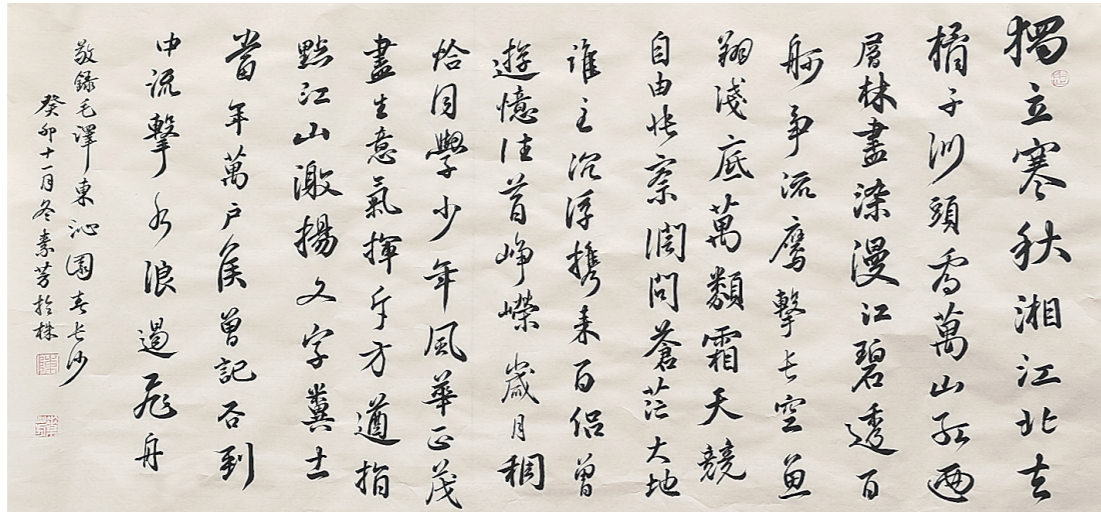 獨立寒秋湘江北去
橘子洲頭看萬山紅遍
層林盡染漫江碧透百
舸爭流鷹擊長空魚
翔淺底萬類霜天競
自由悵寥闊問蒼茫大地
誰主沉浮攜來百侶曾
遊憶往昔崢嶸歲月稠
恰同學少年風華正茂
書生意氣揮斥方遒指
點江山激揚文字糞土
當年萬戶侯曾記否到
中流擊水浪遏飛舟
敬錄毛澤東沁園春長沙
癸卯十一月冬素芳於株